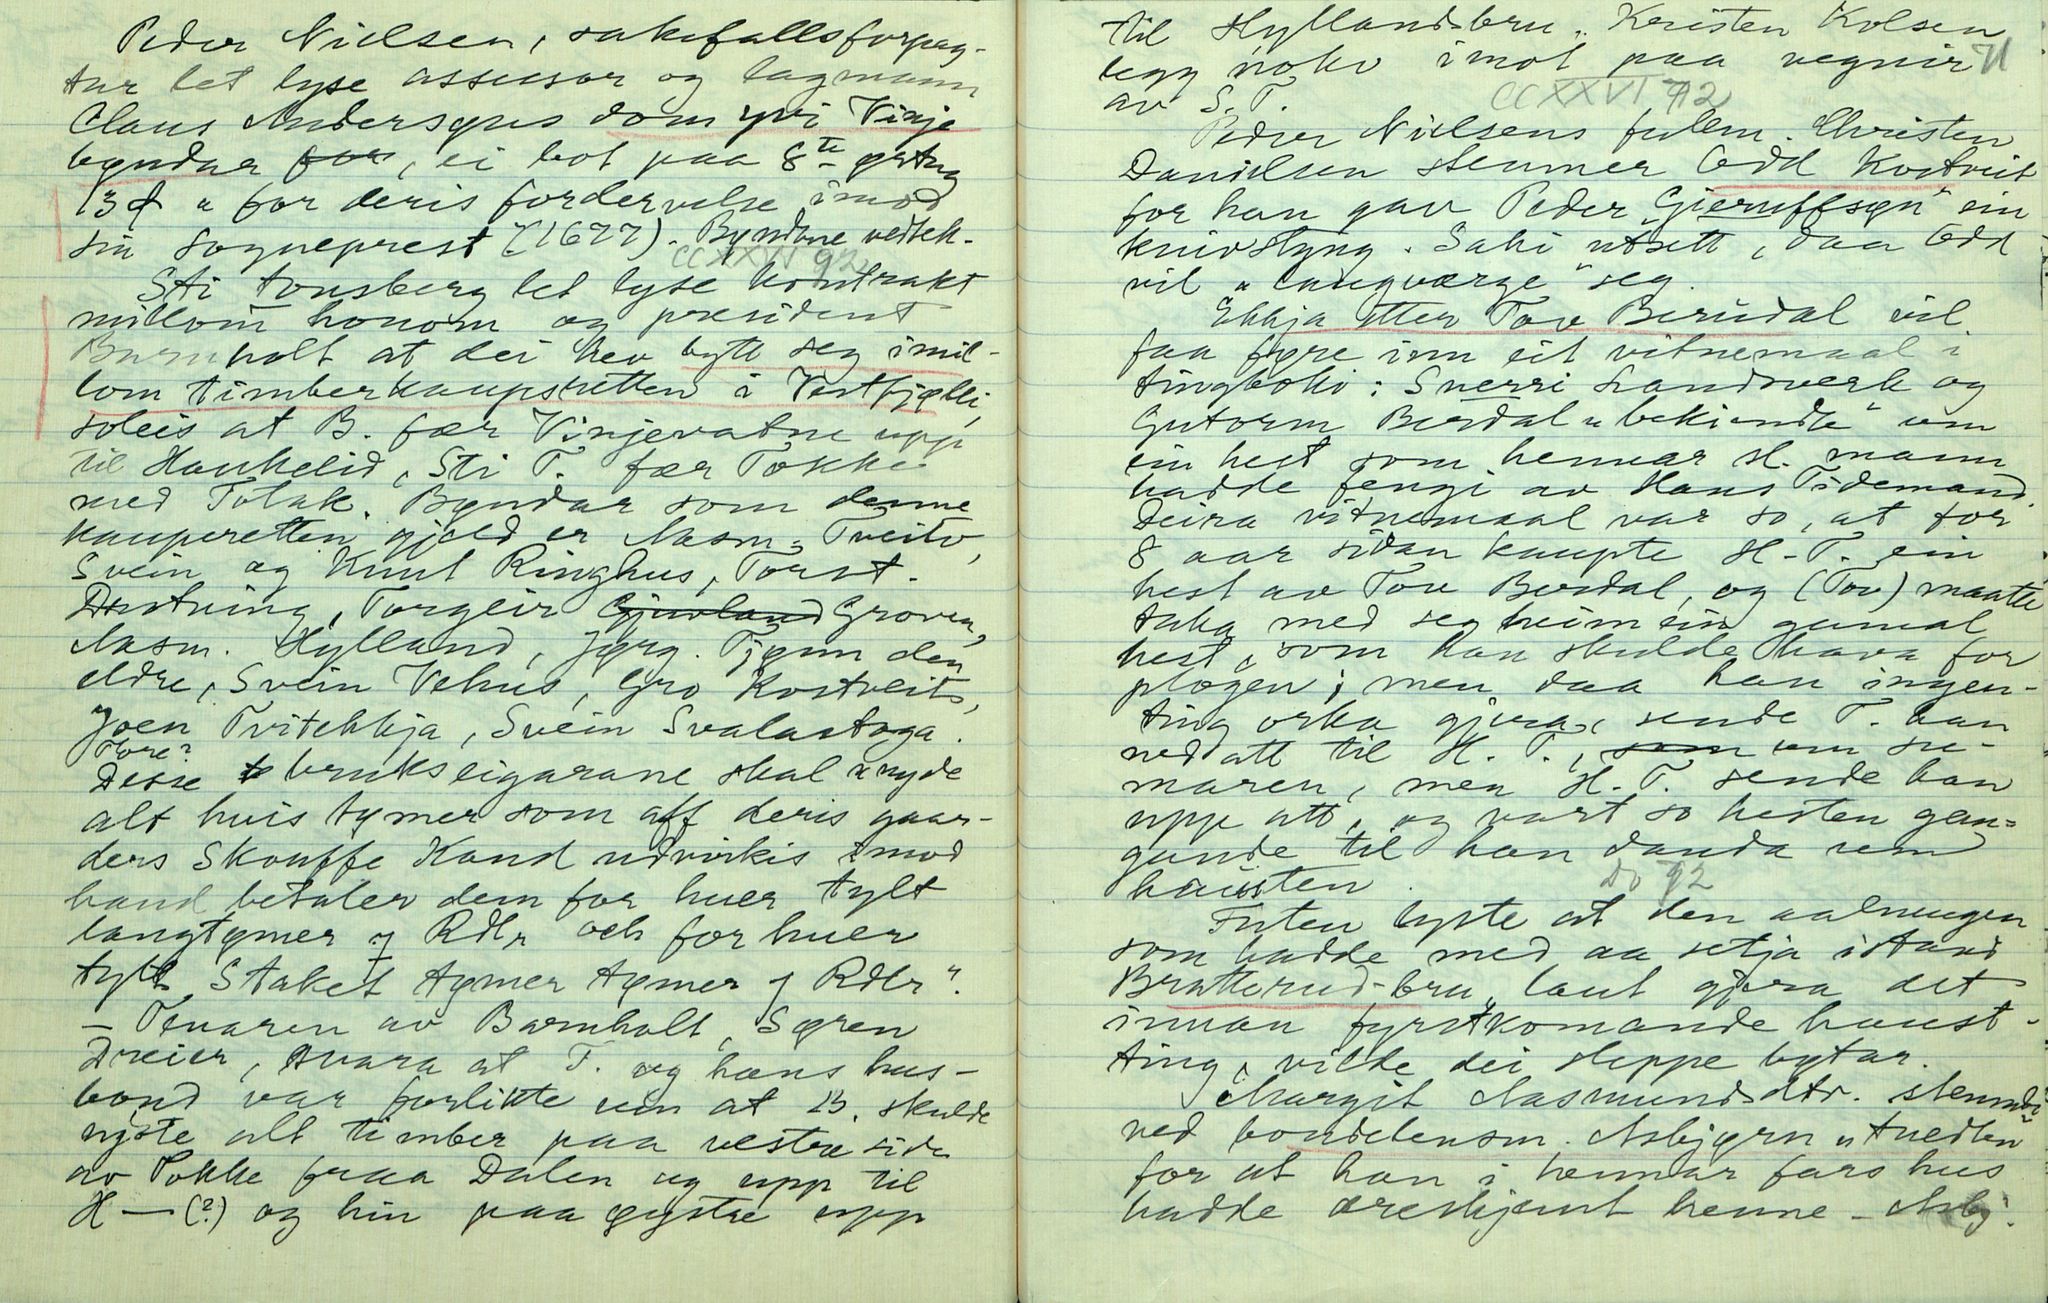 Peder Nielsen, sakefallsforpag-
tar let lyse assessor og lagmann
Claus Andersøns dom yvi Vinje
byndar for, ei bot paa 8te ørtug
13 ₰ „ for deris fordervelse imod
sin sogneprest" (1677). Byndane vedtek.
CCXXVI 92
Sti Tonsberg let lyse kontrakt
millom honom og president
Barnholt at dei hev bytt seg imil-
lom timberkaupsretten i Vestfjølli,
soleis at B. fær Vinjevatne upp
til Haukelid, Sti T. fær Tokke
med Totak. Byndar som denne
kauperetten gjeld er Aasm. Tveito,
Svein og Knut Ringhus, Torst.
Døstning, Torgeir Gjuvland Groven,
Aasm. Hylland, Jørg. Tjønn den
eldre, Svein Vehus, Gro Kostveit,
Joen Tvitekkja, Svein Svalastoga.
Tore?
Desse brukseigarane skal „nyde
alt huis tymer som aff deris gaar-
ders Skouffe Kand udvirkis imod
hand betaler dem for huer tylt
langtømer j Rdlr och for huer
tylt Staket tømer tømer j Rdlr".
– Tenaren av Barnholt, Søren
Dreier, svara at T. og hans hus-
bond var forlikte um at B. skulde
njote alt timber paa vestre side
av Tokke fraa Dalen og upp til
H — (?) og hin paa øystre upp
til Hyllandsbru. Kristen Kolsen
legg noko imot paa vegnir
71
av S. T.
CCXXVI 92
Peder Nielsens fulm. Christen
Danielsen stemner Odd Kostveit
for han gav Peder „Gieruffsøn" ein
knivstyng. Saki utsett, daa Odd
vil „laugværge" seg.
Ekkja etter Tov Berudal vil
faa føre inn eit vitnemaal i
tingboki: Sverri Landsverk og
Gutorm Berdal „bekiende" um
ein hest som hennar sl. mann
hadde fengi av Hans Tidemand.
Deira vitnemaal var so, at for
8 aar sidan kaupte H. T. ein
hest av Tov Berdal, og (Tov) maatte
taka med seg heim ein gamal
hest, som han skulde hava for
plogen; men daa han ingen-
ting orka gjera, sende T. han
ned att til H. T., som um su-
maren, men H. T. sende han
upp att, og vart so hesten gan-
gande til han dauda um
hausten.
Do 92
Futen lyste at den aalmugen
som hadde med aa setja istand
Bratterud-bru, laut gjera det
innan fyrstkomande haust-
ting, vilde dei sleppe bøtar.
Margit Aasmundsdtr. stemnde
ned bondelensm. Asbjørn
for at han i hennar fars hus
hadde æreskjemt henne – Asbj.